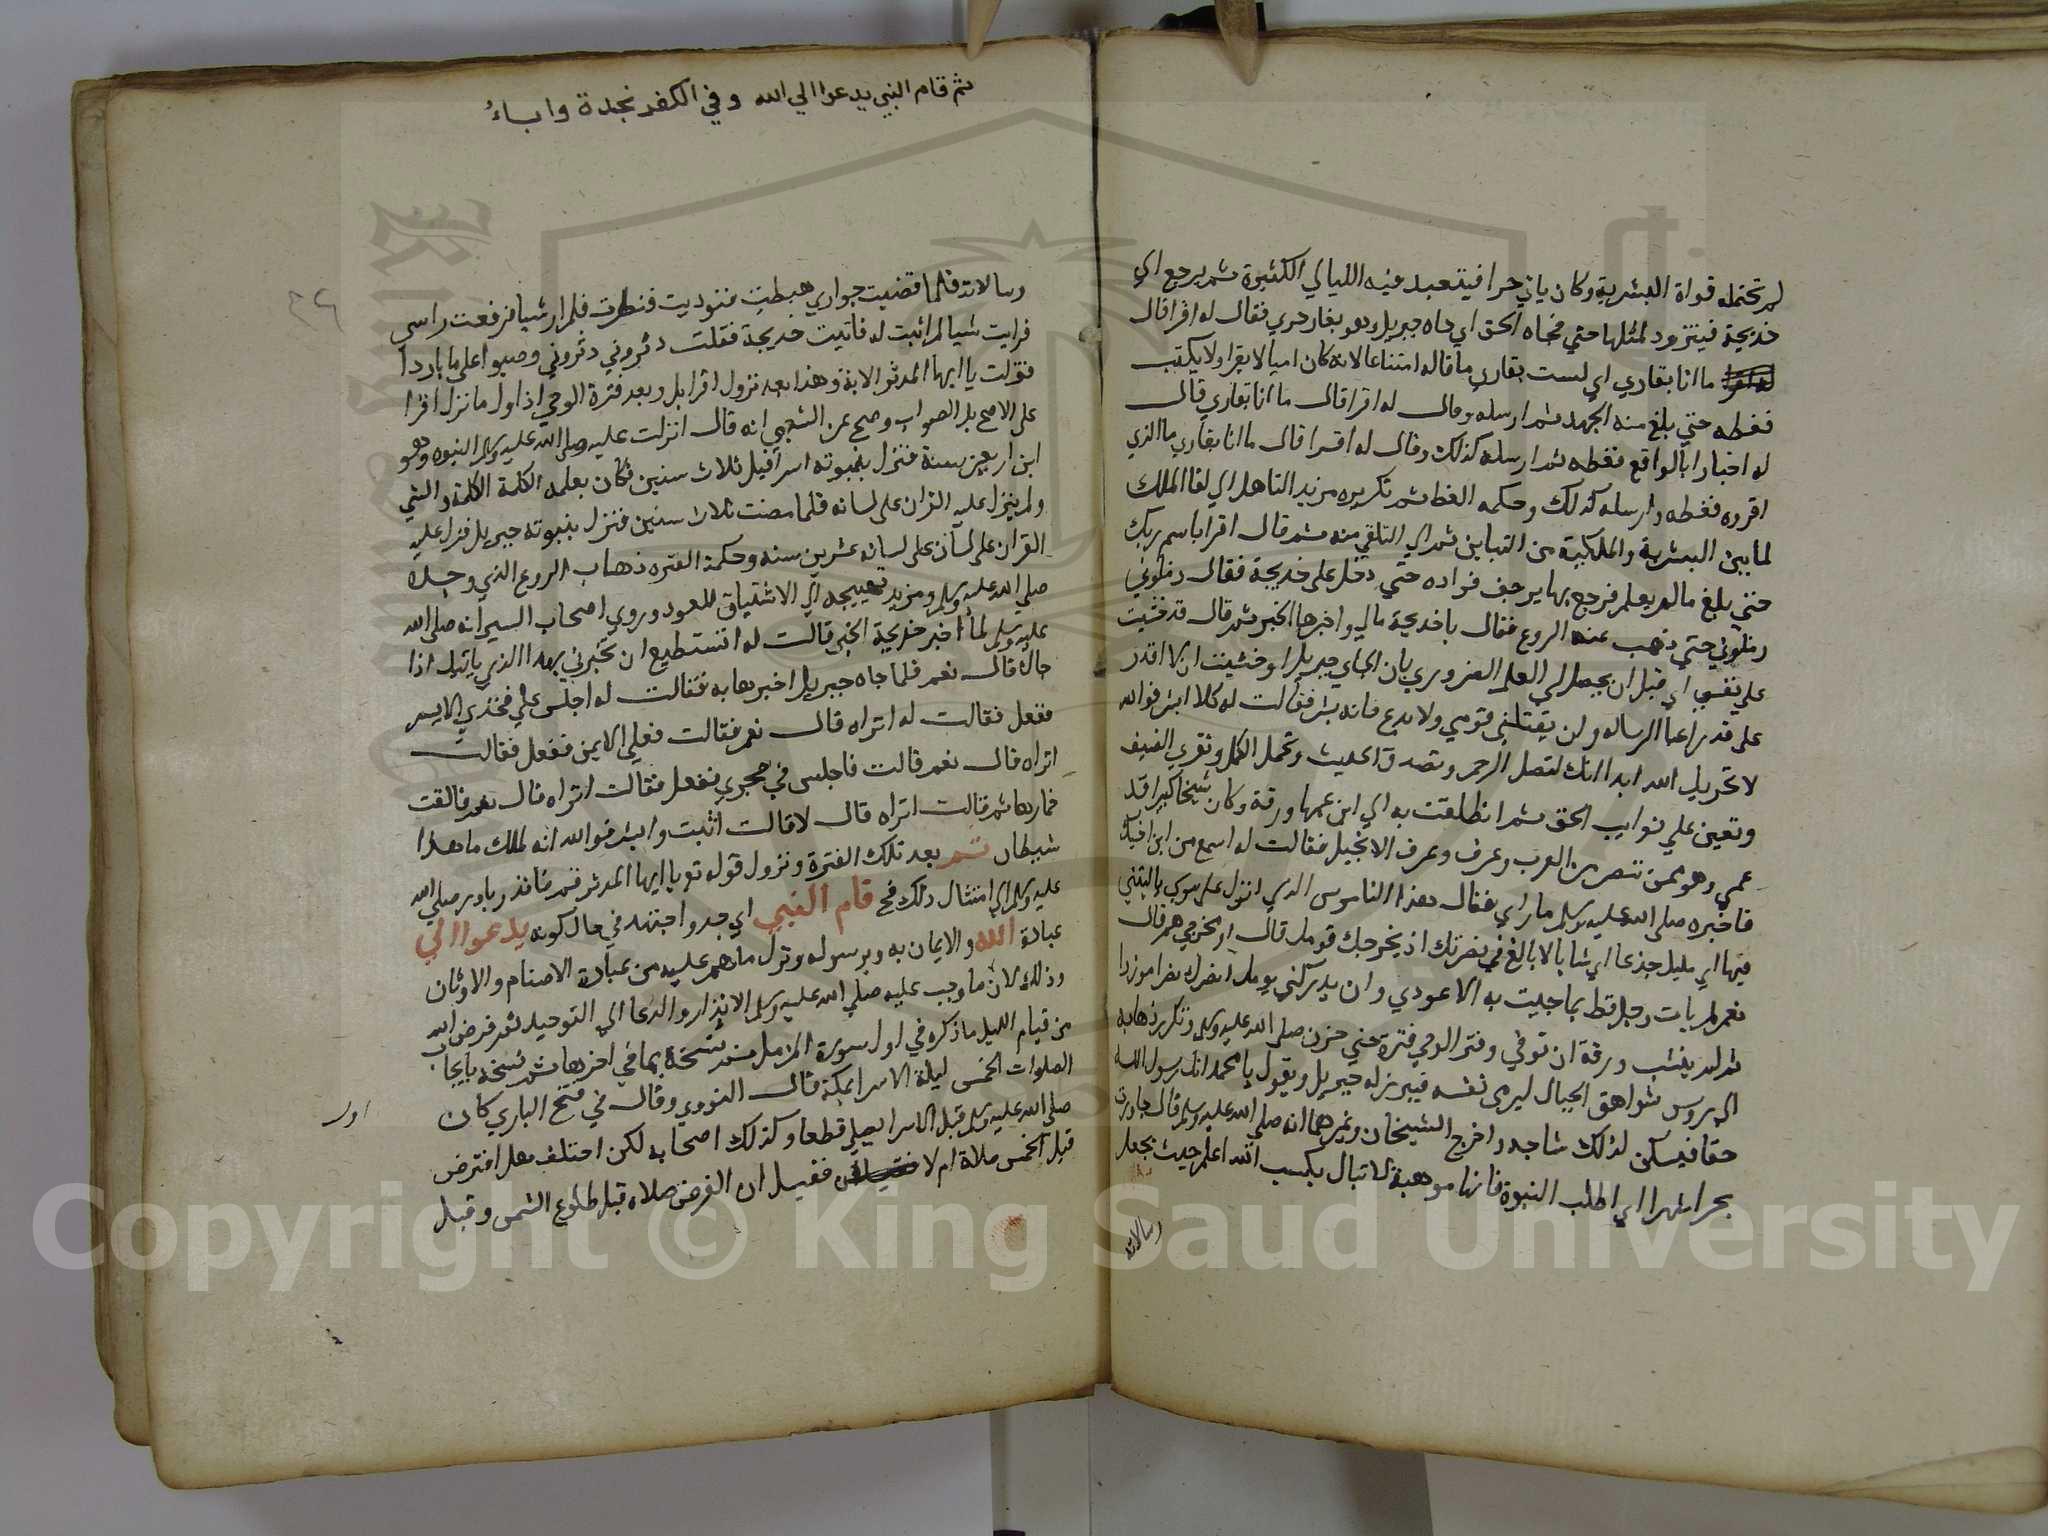 لم تحتمله قواة البشرية وكان ياتي حرا فيتعبد فيه الليالي الكثيرة ثم يرجع الي
خديجة فيتزود لمثلها حتي فجاه الحق اي جاه جبريل وهو بغار حري فقال له اقرا قال
ما انا بقاري اي لست بقاري ما قاله امتناعا لانه كان اميا لا يقرا ولا يكتب
فغطه حتي بلغ منه الجهد ثم ارسله وقال له اقرا قال ما انا بقاري قال
له اخبارا بالواقع فغطه ثم ارسله كذلك وقال له اقرا قال ما انا بقاري ما الذي
اقروه فغطه وارسله كذلك وحكمه الغط ثم تكريره مزيد التاهل الي لقا الملك
لما بين البشرية والملكية من التباين ثم الي التلقي منه ثم قال اقرا باسم ربك
حتي بلغ ما لم يعلم فرجع بها يرجف فواده حتي دخل علي خديجة فقال زملوني
زملوني حتي ذهب عنه الروع فقال يا خديجة مالي واخبرها الخبر ثم قال قد خشيت
علي نفسي اي قبل ان يحصل لي العلم الضروري بان الجاي جبريل او خشيت ان لا اقدر
علي قدر اعبا الرساله ولن يقتلني قومي ولا بدع فانه بشر فقالت له كلا ابشر فوالله
لا يخزيك الله ابدا انك لتصل الرحم وتصدق الحديث وتحمل الكل وتقري الضيف
وتعين علي نوايب الحق ثم انطلقت به الي ابن عمها ورقة وكان شيخا كبيرا قد
عمي وهو ممن تنصر من العرب وعرف وعرف الانجيل فقالت له اسمع من ابن اخيك
فاخبره صلي الله عليه وسلم ما راي فقال هذا الناموس الذي انزل علي موسي يا ليتني
فيها اي جذعا اي شابا لا بالغ في نصرتك اذ يخرجك قومك قال او مخرجي هم قال
نعم لم يات رجل قط بما جيت به الا عودي وان يدركني يومك انصرك نصرا موزرا
ثم لم ينشب ورقة ان توفي وفتر الوحي فترة حتي حزن صلي الله عليه وسلم وتكرر ذهابه
الي روس شواهق الجبال ليرمي نفسه فيبرز له جبريل ويقول يا محمد انك رسول الله
حقا فيسكن لذلك شاجه واخرج الشيخان وغيرهما انه صلي الله عليه وسلم قال جاورت
بحرا شهرا اي لا طلب النبوة فانها موهبة لا تنال بكسب الله اعلم حيث يجعل
رسالاته
ثم قام النبي يدعوا الي الله وفي الكفر نجدة واباءُ
رسالاته فلما قضيت جواري هبطت فنوديت فنظرت فلم ار شيا فرفعت راسي
فرايت شيا لم اثبت له فاتيت خديجة فقلت دثروني دثروني وصبوا علي ما باردا
فنزلت يا ايها المدثر الاية وهذا بعد نزول اقرا بل وبعد فترة الوحي اذ اول ما نزل اقرا
علي الاصح بل الصواب وصح عن الشعبي انه قال انزلت عليه صلي الله عليه وسلم النبوه وهو
ابن اربعين سنة فنزل بنبوته اسرافيل ثلاث سنين فكان يعلمه الكلمة الكلمة والشي
ولم ينزل عليه القران علي لسانه فلما مضت ثلاث سنين فنزل بنبوته جبريل فنزل عليه
القران علي لسان علي لسانه عشرين سنه وحكمة الفتره ذهاب الروع الذي وجده
صلي الله عليه وسلم ومزيد تهييجه الي الاشتياق للعود وروي اصحاب السير انه صلي الله
عليه وسلم لما اخبر خديجة الخبر قالت له اتستطيع ان تخبرني بهذا الذي ياتيك اذا
جاك قال نعم فلما جاه جبريل اخبرها به فقالت له اجلس علي فخذي الايسر
ففعل فقالت له اتراه قال نعم فقالت فعلي الايمن ففعل فقالت
اتراه قال نعم قالت فاجلس في حجري ففعل فقالت اتراه قال نعم فالقت
خمارها ثم قالت اتراه قال لا قالت اثبت وابشر فوالله انه لملك ما هذا
شيطان ثم بعد تلك الفترة ونزول قوله تع يا ايها المدثر قم فانذر بادر صلي الله
عليه وسلم الي امتثال ذلك فح قام النبي اي جد واجتهد في حال كونه يدعوا الي
عبادة الله والايمان به وبرسوله وترك ما هم عليه من عبادة الاصنام والاوثان
وذلك لان ما وجب عليه صلي الله عليه وسلم الانذار والدعا الي التوحيد ثم فرض الله
من قيام الليل ما ذكره في اول سورة المزمل ثم نسخه بما في اخرها ثم نسخه بايجاب
الصلوات الخمس ليلة الاسرا بمكة قال النووي وقال في فتح الباري كان
صلي الله عليه وسلم قبل الاسرا يصلي قطعا وكذلك اصحابه لكن اختلف هل افترض
قبل الخمس صلاة ام لا فقيل ان الفرض صلاه قبل طلوع الشمس وقبل
اول